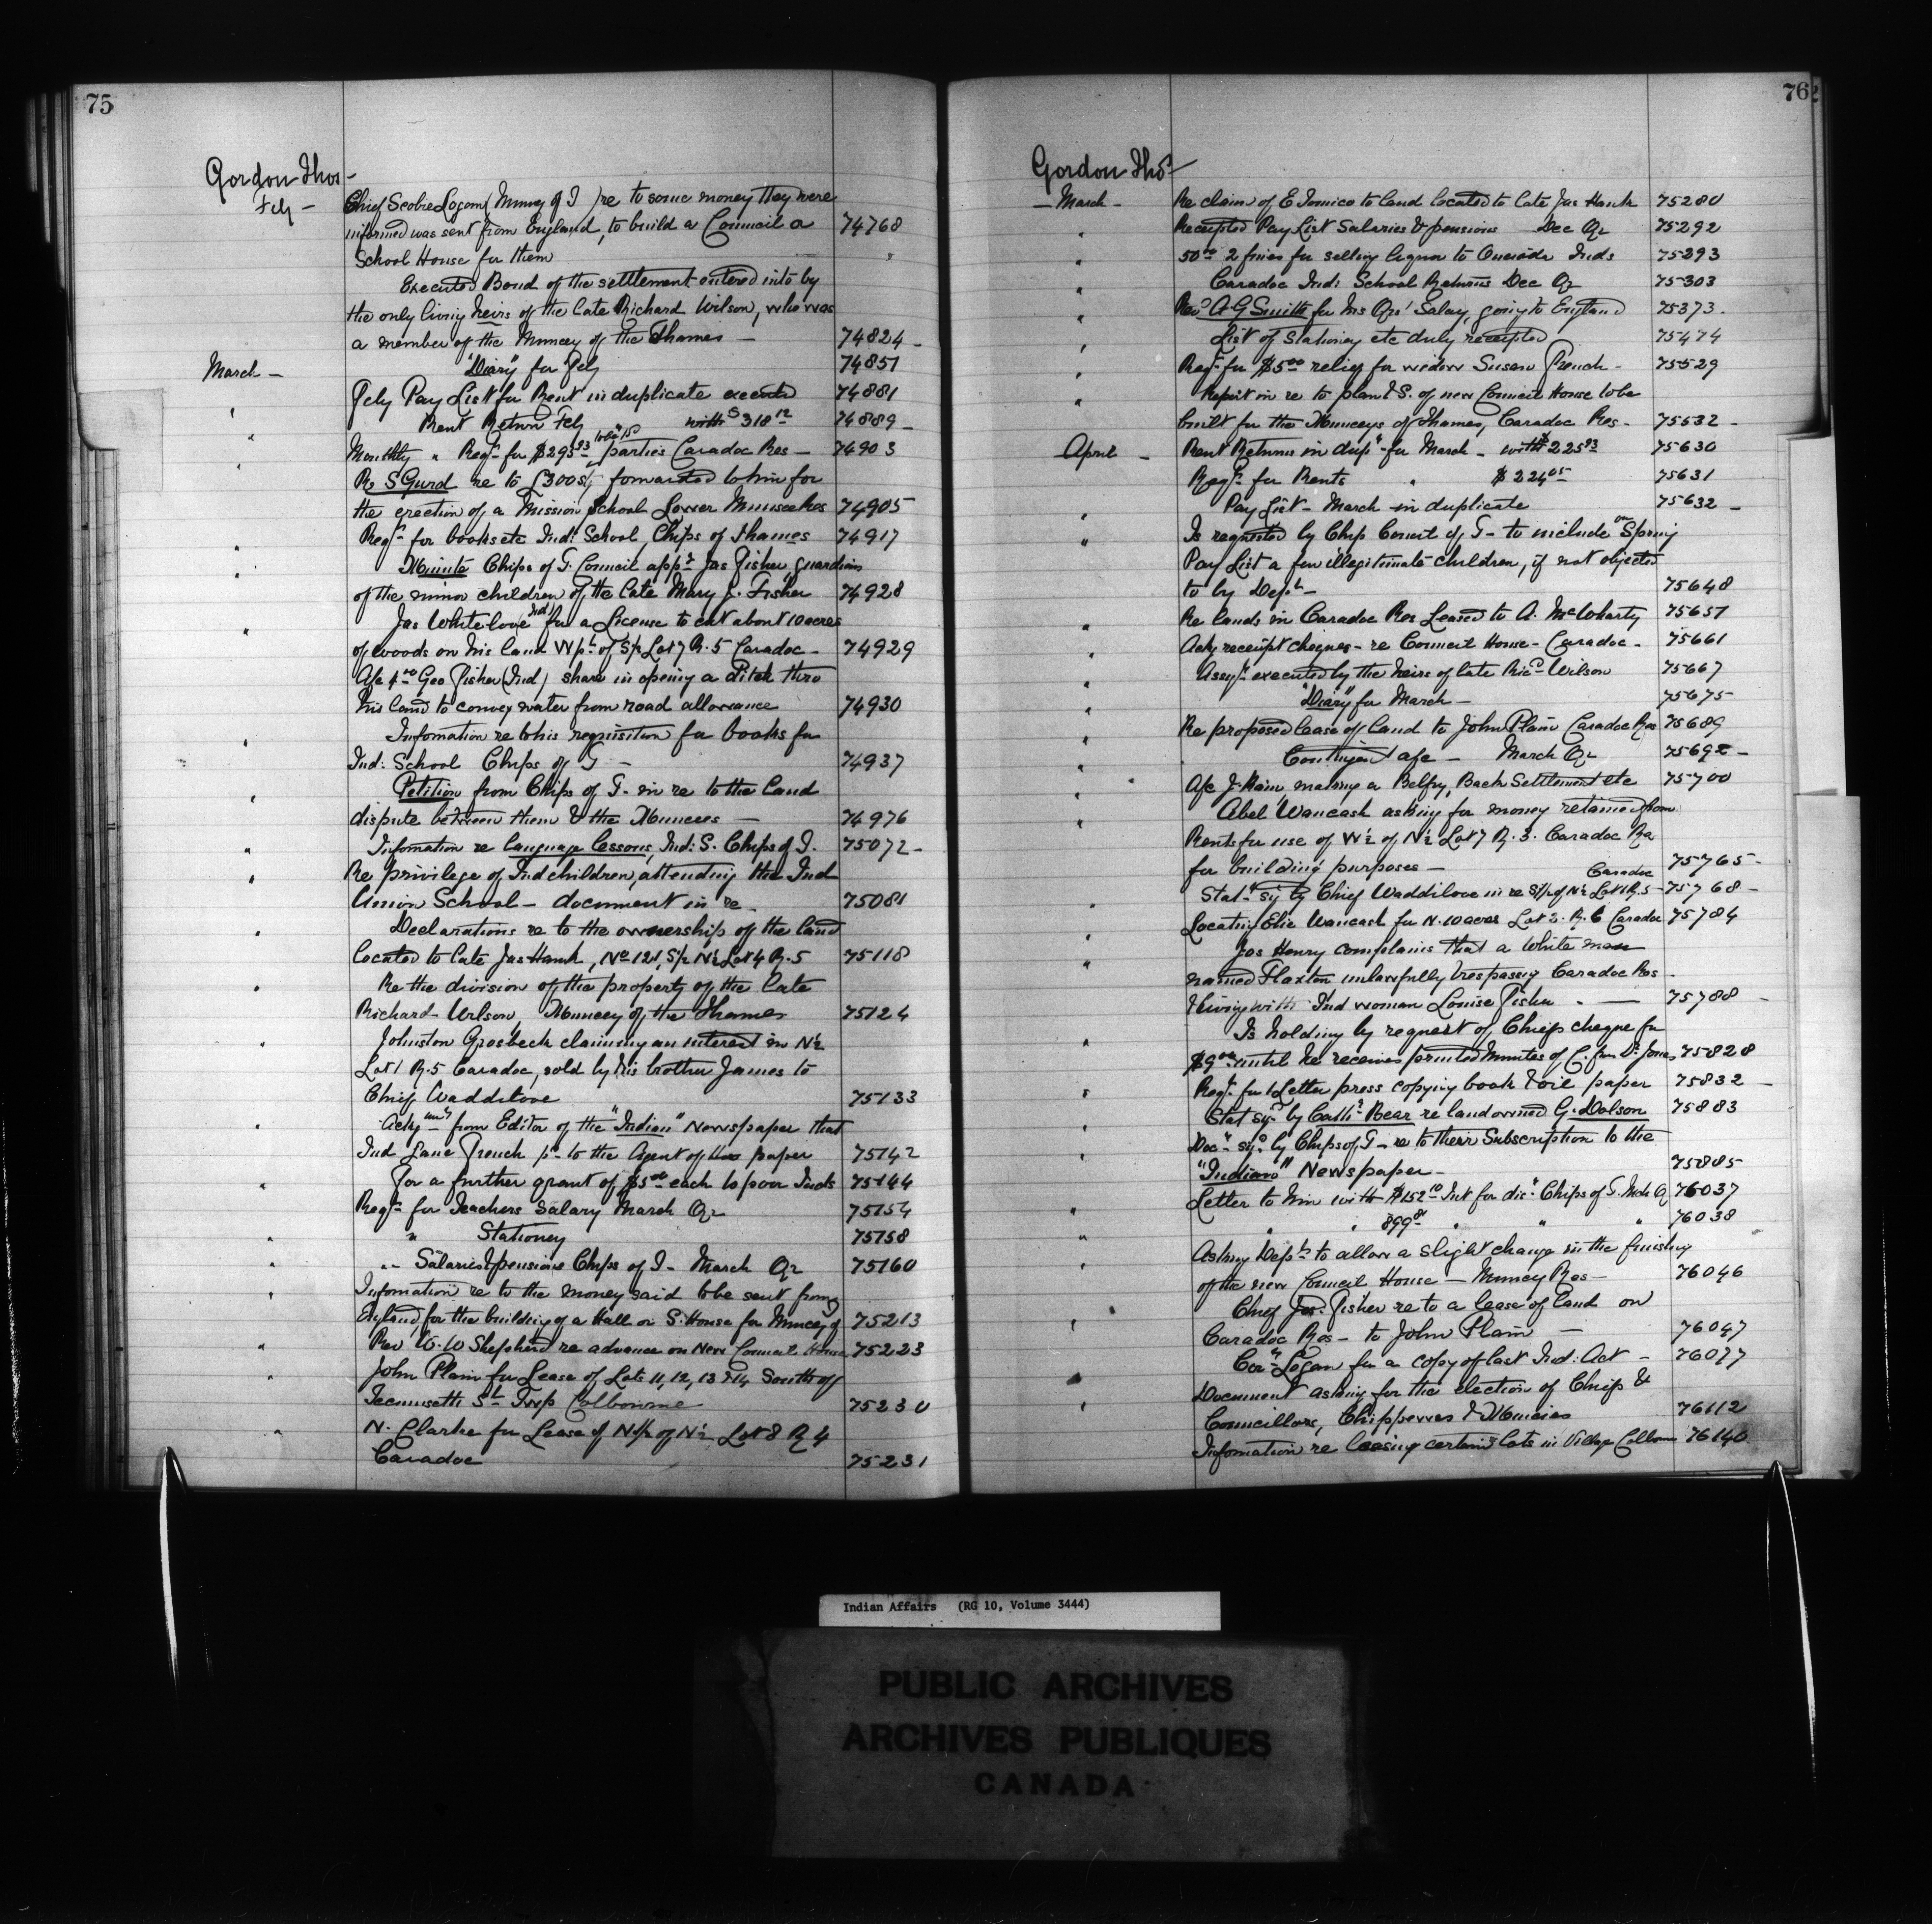 75
Gordon Thos-
Feby - Chief Scobie Logan (Muncey of T) re to some money they were
informed was sent from England, to build a Council a 74768
School House for them
Executed Bond of the settlement entered into by
the only living heirs of the late Richard Wilson, who was
a member of the Muncey of the Thames - 74824 -
March - "Diary" for Feby 74851
Feby Pay List for Rent in duplicate executed 74881
" Rent Return Feby with $318 12 74889 -
" Monthly " Reqn for $293 93 parties Caradoc Res - 74903
" Re S Gurd re to £300 stg forwarded to him for
the erection of a Mission School Lower Munsee Res 74905
Reqn for books etc Ind: School, Chips of Thames 74917
" Minute Chips of T. Council appg Jas Fisher, guardian
" of the minor children of the late Mary J. Fisher 74928
Jas Whitelove (Ind) for a License to cut about 10 acres
" of woods on his land W pt of S½ Lot 7 R. 5 Caradoc - 74929
A/c 4 00 Geo Fisher (Ind) share in opening a ditch thro
his land to convey water from road allowance 74930
Information re to his requisition for books for
" Ind: School Chips of T - 74937
Petition from Chips of T - in re to the land
" dispute between them & the Muncees - 74976
" Information re language lessons, Ind: S. Chips of T. 75072 -
" Re privilege of Ind children, attending the Ind
Union School - document in re - 75081
" Declarations re to the ownership of the land
located to late Jas Hank, No 121, S½ N½ Lot 4 R. 5 75118
" Re the division of the property of the late
Richard Wilson, Muncey of the Thames 75124
" Johnston Grosbeck claiming an interest in N½
Lot 1 R. 5 Caradoc, sold by his brother James to
Chief Waddilove 75133
" Ackg from Editor of the "Indian" Newspaper that
Ind Jane French pd to the Agent of this paper 75142
" For a further grant of $5 00 each to poor Inds 75144
Reqn for Teachers Salary March Qr 75154
" " Stationey 75158
" " Salaries & pensions Chips of T - March Qr 75160
" Information re to the money said to be sent from
England, for the building of a Hall or S. House for Muncey of 75213
" Rev W. W Shepherd re advance on New Council House 75223
" John Plain for Lease of Lots 11, 12, 13 & 14 South of
Tecumseth St Twp Colbourne 75230
" N. Clarke for Lease of N½ of N½ Lot 8 R 4
Caradoc 75231
76
Gordon Thos-
- March - Re claim of E Tomico to land located to late Jas Hank 75280
" Receipted Pay List Salaries & pensions Dec Qr 75292
" 50 00 2 fines for selling liquor to Oneida Inds 75293
" Caradoc Ind: School Returns Dec Qr 75303
" Revd A G Smith for his Qrs' Salary, going to England 75373.
" List of Stationey etc duly receipted 75474
" Reqn for $5 00 relief for widow Susan French - 75529
" Report in re to plan & S. of new Council House to be
built for the Munceys of Thames, Caradoc Res - 75532 -
April - Rent Returns in dupte for March - with $225 93 75630
Reqn for Rents " $224 05 75631
" Pay List - March in duplicate 75632 -
" Is requested by Chip Council of T - to include on Spring
Pay List a few illegitimate children, if not objected
to by Dept - 75648
" Re lands in Caradoc Res Leased to A. McWharty 75651
" Ackg receipt cheques - re Council House - Caradoc - 75661
" Assgt executed by the heirs of late Richd Wilson 75667
" "Diary" for March - 75675
" Re proposed lease of land to John Plain Caradoc Res 75689
" Contingent a/c - March Qr 75692 -
" A/c J. Main, making a Belfry, Back Settlement etc 75700
" Abel Wancash asking for money retained from
Rents for use of W½ of N½ Lot 7 R. 3. Caradoc Res
for building purposes - 75765 -
" Statt sigd by Chief Waddilove in re S½ of N½ Lot 1 R. 5 - Caradoc 75768 -
" Locating Elie Wancash for N. 10 acres Lot 2. R. 6 Caradoc 75784
" Jos Henry complains that a white man
named Flaxton unlawfully trespassing Caradoc Res -
& living with Ind woman Louise Fisher - 75788 -
" Is holding by request of Chiefs cheque for
$9 00 until he receives printed Minutes of C. from Dr Jones 75828
Reqn for 1 Letter press copying book & oil paper 75832 -
" Stat sigd by Cathe Bear re land owned G. Dolson 75883
" Doct sigd by Chips of T - re to their Subscription to the
"Indian" Newspaper - 75885
" Letter to him with $152 10 Int for dis" Chips of T. Mch Q 76037
" " " 899 81 " " " 76038
" Asking Dept to allow a slight change in the finishing
of the new Council House - Muncey Res - 76046
" Chief Jos. Fisher re to a lease of land on
Caradoc Res - to John Plain - 76047
" Cor Logan for a copy of last Ind: Act - 76077
" Document asking for the election of Chiefs &
Councillors, Chippewas & Muncies 76112
Information re leasing certain lots in Village Colborne 76140
Indian Affairs (RG 10, Volume 3444)
PUBLIC ARCHIVES
ARCHIVES PUBLIQUES
CANADA